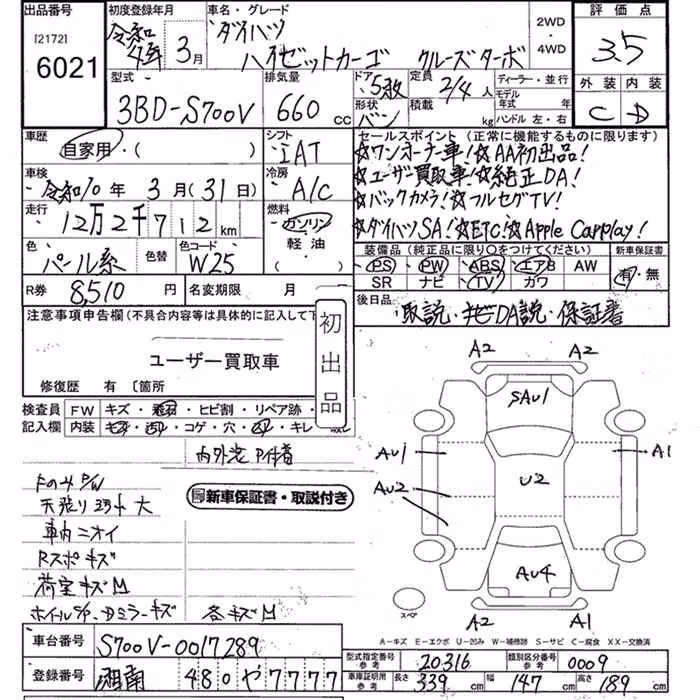 出品番号
[2172]
6021
初度登録年月
令和4年 3月
車名・グレード
ダイハツ
ハイゼットカーゴ クルーズターボ
2WD
・
4WD
評価点
3.5
外装 内装
C D
型式
3BD-S700V
排気量
660 cc
ドア 5枚
形状 バン
定員 2/4 人
積載 kg
ディーラー・並行
モデル年式 年
ハンドル 左・右
車歴
自家用・( )
シフト
IAT
車検
令和10年 3月(31日)
冷房
A/C
走行
12万2千712km
燃料
ガソリン
軽油
( )
色
パール系
色替
色コード
W25
R券 8,510 円
名変期限 月
セールスポイント(正常に機能するものに限ります)
☆ワンオーナー車!☆AA初出品!
☆ユーザー買取車!☆純正DA!
☆バックカメラ!☆フルセグTV!
☆ダイハツSA!☆ETC!☆Apple Carplay!
装備品(純正品に限り○をつけてください)
PS PW ABS エアB AW
SR ナビ TV カワ
新車保証書
有・無
後日品
取説・ナビDA説・保証書
注意事項申告欄(不具合内容等は具体的に記入して下
ユーザー買取車
修復歴 有 〔箇所
初出品
検査員記入欄
FW キズ・飛石・ヒビ割・リペア跡・
内装 モヨウ・汚れ・コゲ・穴・・キレ・
内外装 P付着
天張り 大
車内ニオイ
Rスポキズ
荷室キズM
各キズM
新車保証書・取説付き
A2 A2
SAU1
AU1 A1
U2
AU2
AU4
A2 A1
スペア
A-キズ E-エクボ U-凹み W-補修跡 S-サビ C-腐食 XX-交換済
車台番号 S700V-0017289
登録番号 湘南 480 や 7777
型式指定番号 参考 20316
類別区分番号 参考 0009
車庫証明用 参考 長さ 339 cm 幅 147 cm 高さ 189 cm